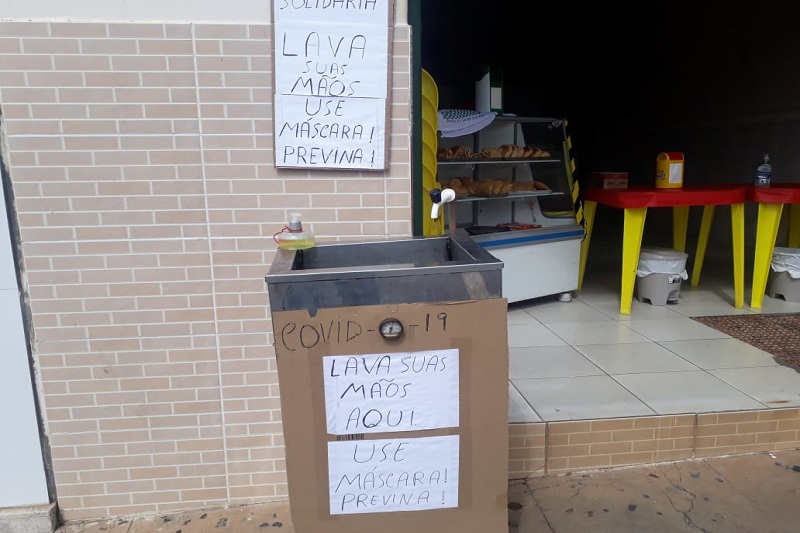 SOLIDÁRIA
LAVA
SUAS
MÃOS
USE
MÁSCARA!
PREVINA!
COVID-19
LAVA SUAS
MÃOS
AQUI
USE
MÁSCARA!
PREVINA!